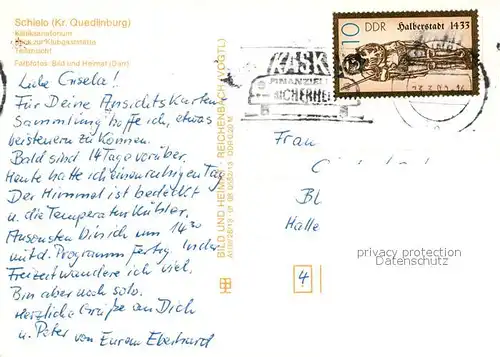 Schielo (Kr. Quedlinburg)
Kliniksanatorium
Blick zur Klubgaststätte
Teilansicht
Farbfotos: Bild und Heimat (Darr)
Liebe Gisela!
Für Deine Ansichtskarten
Sammlung hoffe ich, etwas
beisteuern zu können.
Bald sind 14 Tage vorüber.
Heute hatte ich einen ruhigen Tag
Der Himmel ist bedeckt
u. die Temperatur kühler.
Ansonsten bin ich um 14³⁰
mit d. Programm fertig. In der
Freizeit wandere ich viel.
Bin aber noch solo.
Herzliche Grüße an Dich
u. Peter von Eurem Eberhard
BILD UND HEIMAT REICHENBACH (VOGTL)
DDR 0,20 M
KASKO
FINANZIELLE
SICHERHEIT
10 DDR Halberstadt 1433
Frau
Bl
Halle
4
privacy protection
Datenschutz